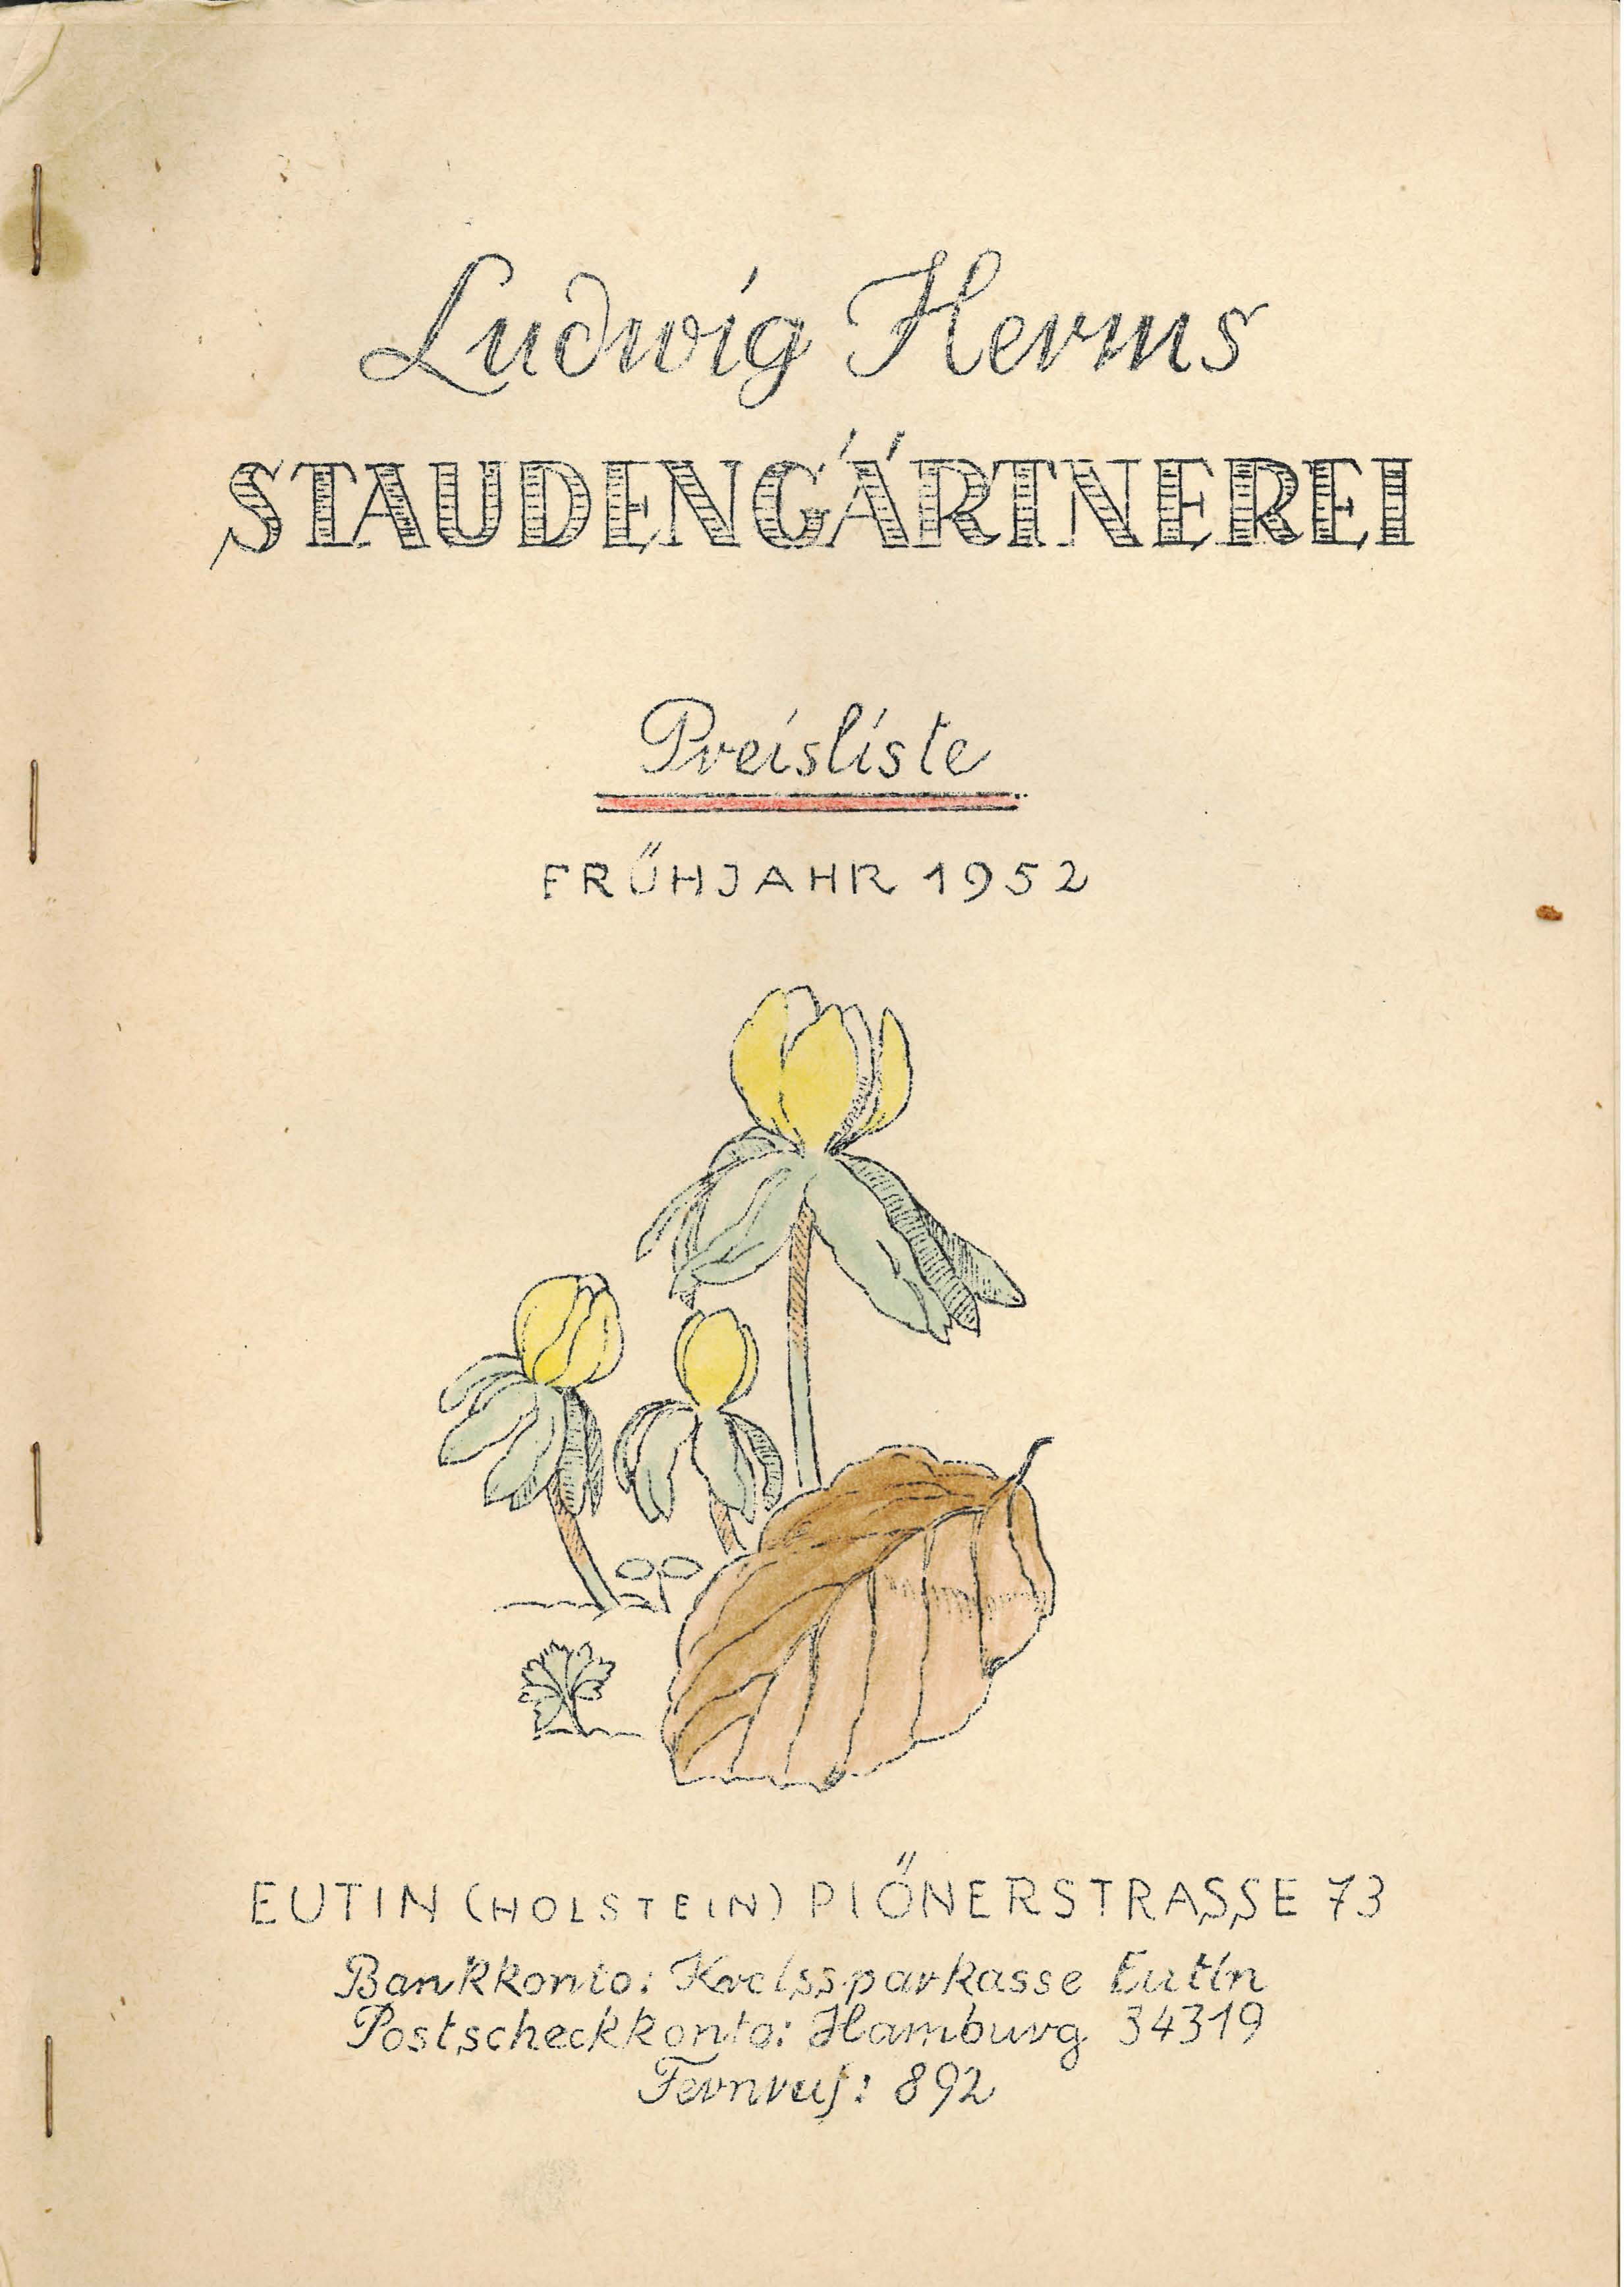 Ludwig Herms
STAUDENGÄRTNEREI
Preisliste
FRÜHJAHR 1952
EUTIN (HOLSTEIN) PIÖNERSTRASSE 73
Bankkonto: Kreissparkasse Eutin
Postscheckkonto: Hamburg 34319
Fernruf: 892